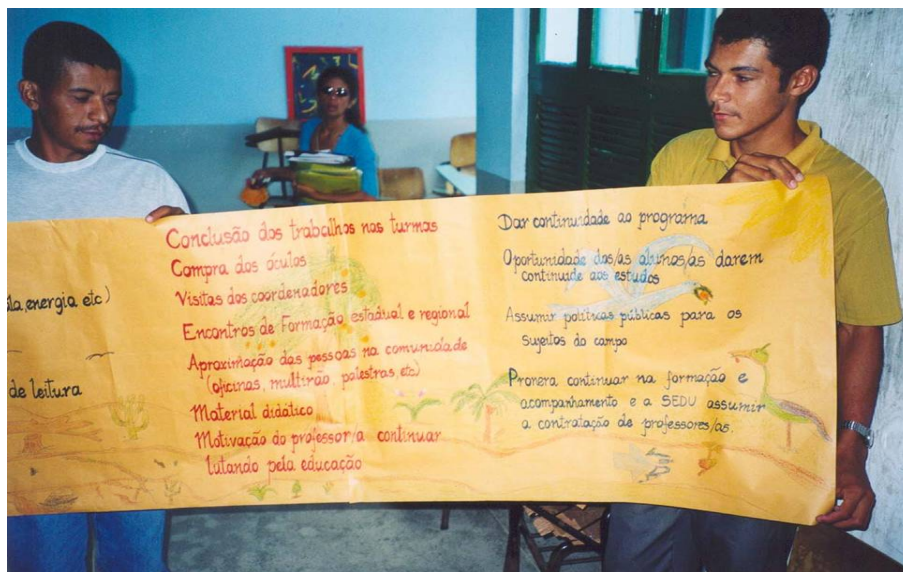 energia etc)
de leitura
Conclusão dos trabalhos nas turmas
Compra dos óculos
Visitas dos coordenadores
Encontros de Formação estadual e regional
Aproximação das pessoas na comunidade
(oficinas, multirão, palestras, etc)
Material didático
Motivação do professor/a continuar
lutando pela educação
Dar continuidade ao programa
Oportunidade dos/as alunos/as darem
continuide aos estudos
Assumir políticas públicas para os
sujeitos do campo
Pronera continuar na formação e
acompanhamento e a SEDU assumir
a contratação de professores/as.